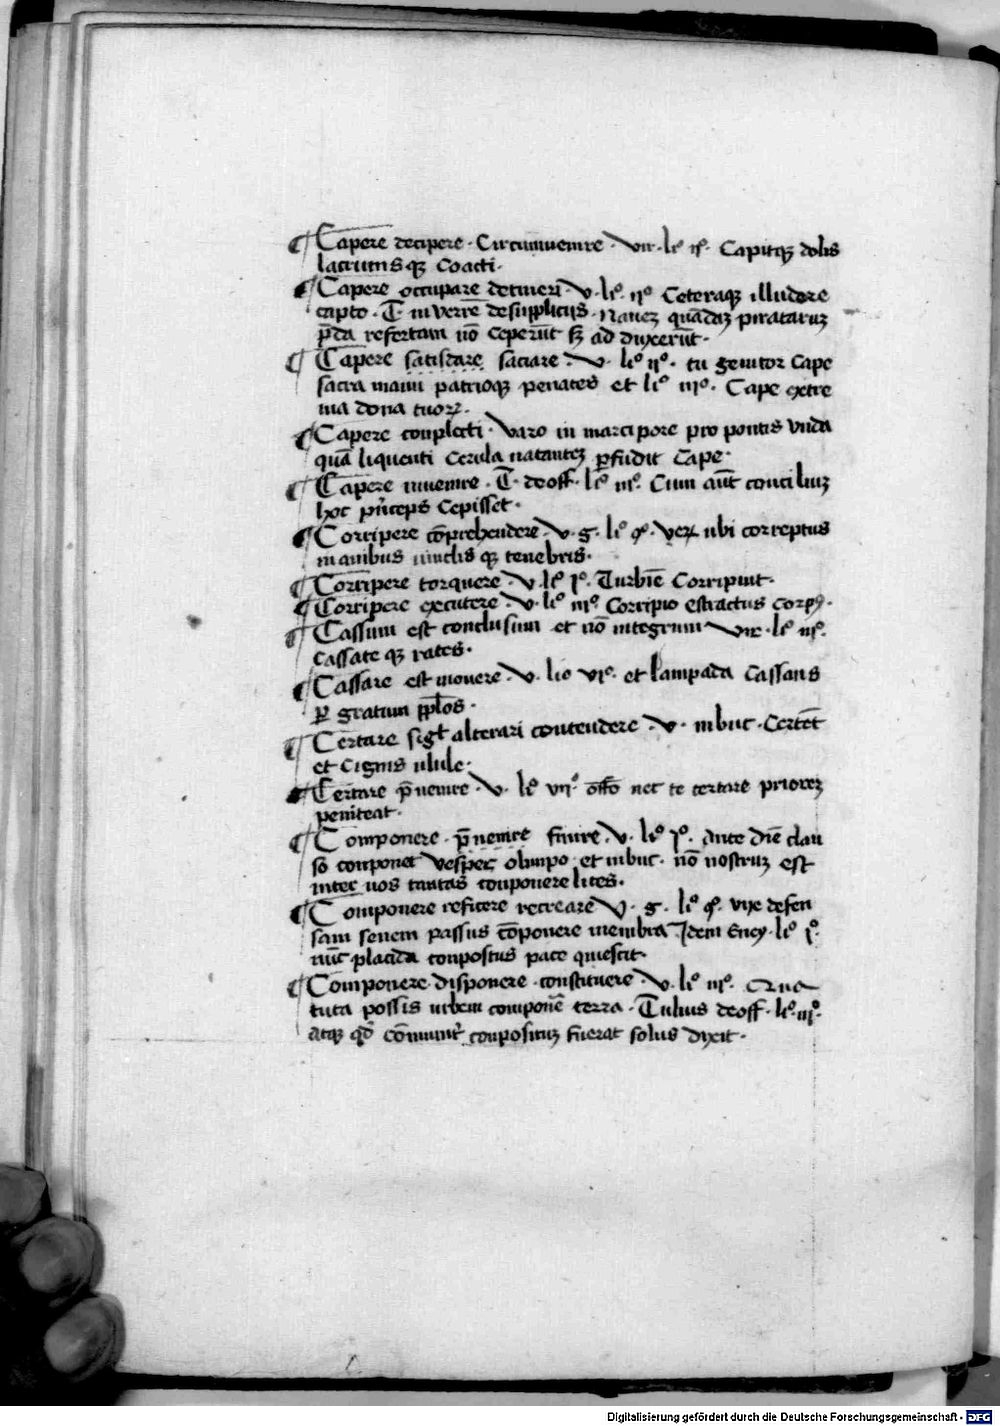 ¶ Capere decipere · Circumuenire · vir · liº · iiº · Capitqꝫ dolis
lacrimis qꝫ coacti ·
¶ Capere occupare detineri · v · liº · iiº Ceteraqꝫ illudere
capto · T · in verrē de suppliciis · Naueꝫ quādaꝫ pirataruꝫ
p̄da refertam nō Ceperūt sꝫ ad duxerūt ·
¶ Capere satisdare saciare · v · liº iiº · tu genitor Cape
sacra manu patriosqꝫ penates et liº iiiº · Cape extre
ma dona tuorꝝ ·
¶ Capere conplecti · Varo in marcipore pro pontis vnda
quā liquenti Cerula natanteꝫ ꝑfudit Cape ·
¶ Capere inuenire · T · de off · liº iiiº · Cum aūt conciliuꝫ
hoc p̄nceps Cepisset ·
¶ Corripere cōprehendere · v · g · liº · verꝝ ubi correptus
manibus uinclis qꝫ tenebris ·
¶ Corripere torquere · v · liº · iº · Turbīe Corripuit ·
¶ Corripere excutere · v · liº iiiº Corripio estractus corpꝰ ·
¶ Cassum est conclusum et nō integrum vir · liº iiº ·
Cassate qꝫ rates ·
¶ Cassare est mouere · v · lio viº · et lampada Cassans
ꝑ gratum pplos ·
¶ Certare sigt alterari contendere · v · in buc · Certēt
et Cignis ulule ·
¶ Certare p̄uenire · v · liº viiº nec te certare prioreꝫ
peniteat ·
¶ Componere · p̄uenire finire · v · liº iº · Ante diē clau
so conponet Vesper olimpo · et in buc · nō nostruꝫ est
inter uos tantas conponere lites ·
¶ Componere reficere recreare V · g · liº · vixe defen
sam senem passus cōponere membra Idem Eney · liº iº ·
nūc placida conpostus pace quiescit ·
¶ Componere · disponere · constituere · v · liº iiiº · Qua
tuta possis urbem componē terra · Tulius de off · liº iiiº ·
atqꝫ qd̄ cōmunit᷑ conposituꝫ fuerat solus dixit ·
Digitalisierung gefördert durch die Deutsche Forschungsgemeinschaft - DFG